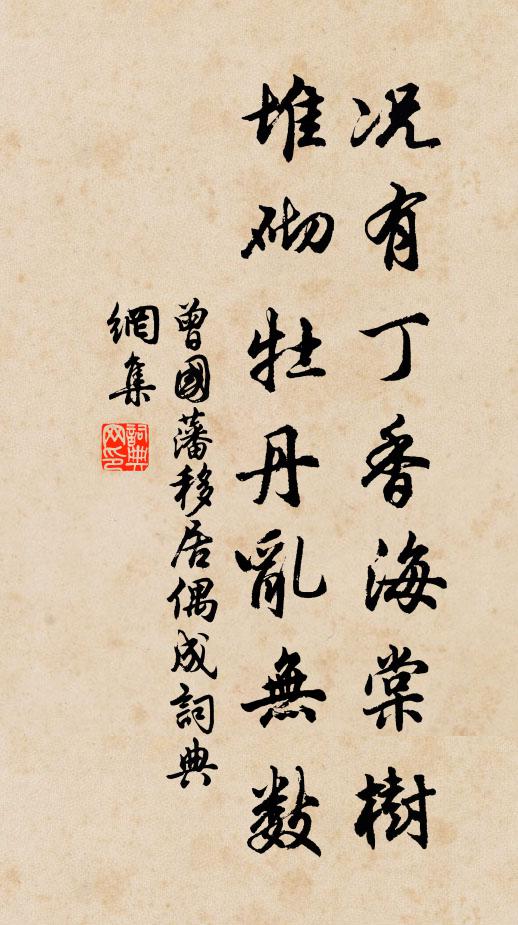 况有丁香海棠樹
堆砌牡丹亂無数
曾國藩移居偶成詞典
網集
詞典
网印